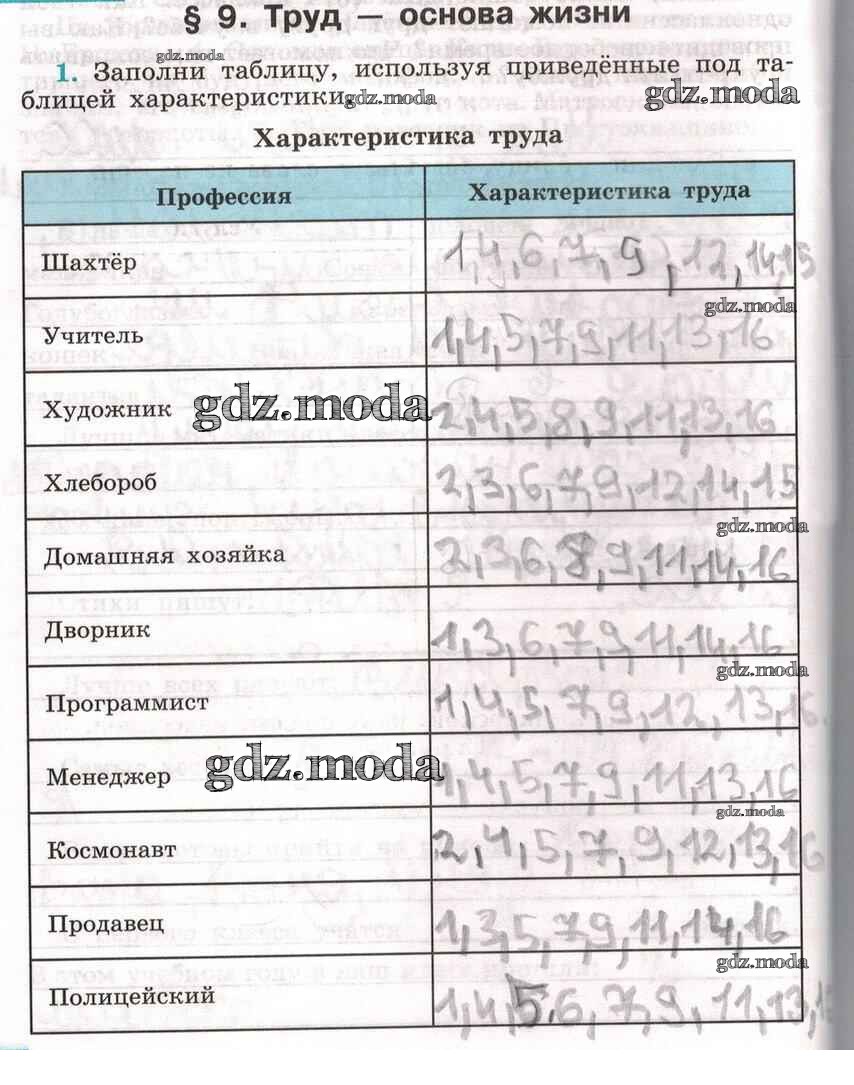 § 9. Труд — основа жизни
gdz.moda
1. Заполни таблицу, используя приведённые под та-
блицей характеристики.
gdz.moda
gdz.moda
Характеристика труда
Профессия Характеристика труда
Шахтёр 1,4,6,7,9,12,14,15
gdz.moda
Учитель 1,4,5,7,9,11,13,16
Художник 2,4,5,8,9,11,13,16
gdz.moda
Хлебороб 2,3,6,7,9,12,14,15
gdz.moda
Домашняя хозяйка 2,3,6,8,9,11,14,16
Дворник 1,3,6,7,9,11,14,16
gdz.moda
Программист 1,4,5,7,9,12,13,16.
Менеджер 1,4,5,7,9,11,13,16
gdz.moda
gdz.moda
Космонавт 2,4,5,7,9,12,13,16
Продавец 1,3,5,7,9,11,14,16
gdz.moda
Полицейский 1,4,5,6,7,9,11,13,